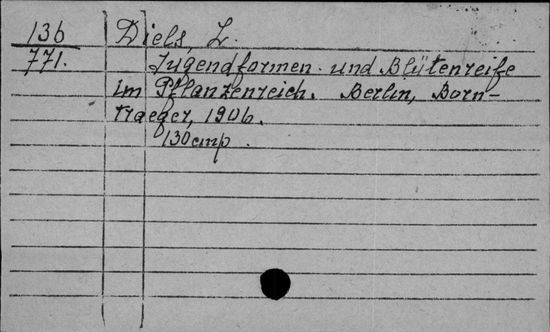 136 Diels, L.
771. Jugendformen und Blütenreife
im Pflanzenreich. Berlin, Born-
traeger, 1906.
130 стр.